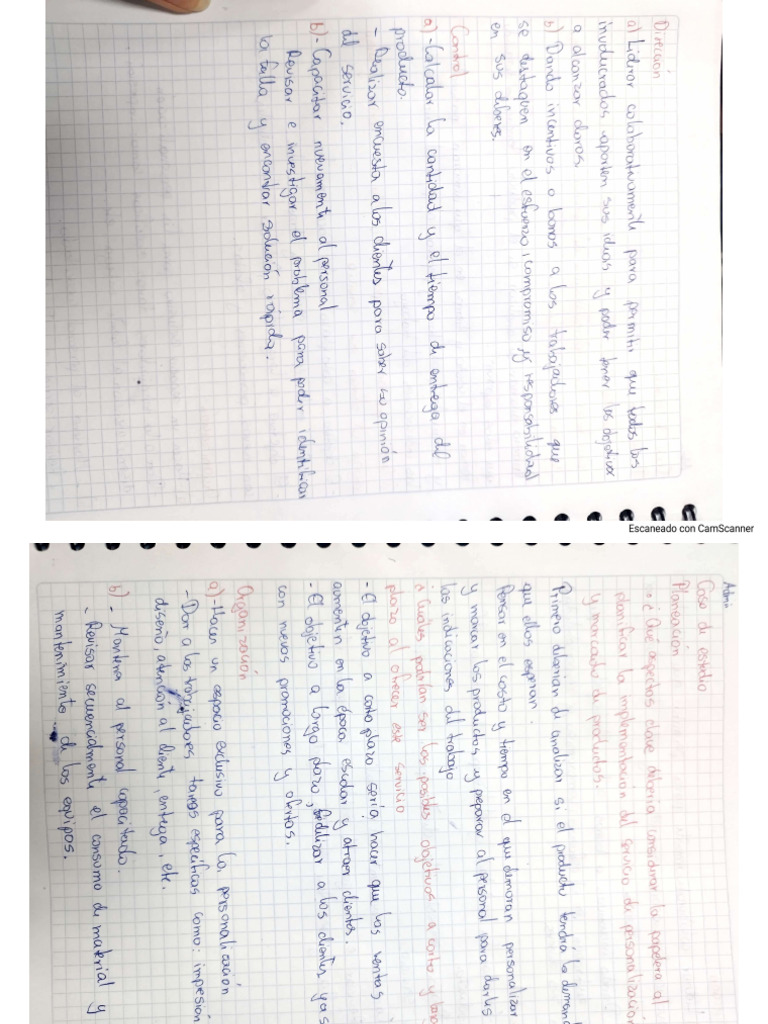 Dirección
a) Liderar colaborativamente para permitir que todos los
involucrados aporten sus ideas y poder tener los objetivos
a alcanzar claros.
b) Dando incentivos o bonos a los trabajadores que
se destaquen en el esfuerzo, compromiso y responsabilidad
en sus deberes.
Control
a)- Calcular la cantidad y el tiempo de entrega del
producto.
- Realizar encuesta a los clientes para saber su opinión
del servicio.
b)- Capacitar nuevamente al personal
Revisar e investigar el problema para poder identificar
la falla y encontrar solución rápida.
Escaneado con CamScanner
Admin
Caso de estudio
Planeación
¿Qué aspectos clave debería considerar la papelera al
planificar la implementación del servicio de personalización
y marcado de productos.
Primero deberian de analizar si el producto tendría la deman
que ellos esperan.
Pensar en el costo y tiempo en el que demoran personalizar
y marcar los productos, y preparar al personal para darles
las indicaciones del trabajo
¿Cuáles podrían ser los posibles objetivos a corto y larg
plazo al ofrecer este servicio
- El objetivo a corto plazo sería hacer que las ventas
aumenten en la época escolar y atraer clientes.
- El objetivo a largo plazo, fidelizar a los clientes ya s
con nuevas promociones y ofertas.
Organización
a)- Hacer un espacio exclusivo para la personalización
- Dar a los trabajadores tareas específicas como: impresión
diseño, atención al cliente, entrega, etc.
b)- Mantener al personal capacitado.
- Revisar secuencialmente el consumo de material y
mantenimiento de los equipos.